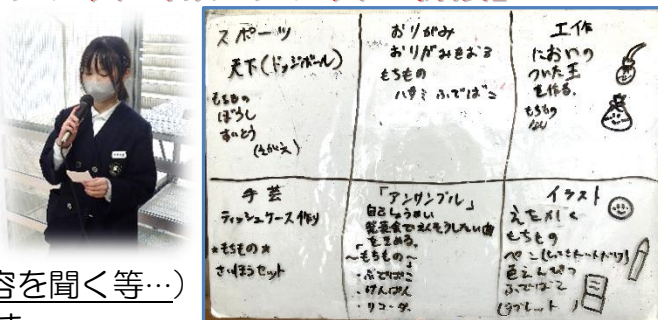 スポーツ
天下(ドッジボール)
もちもの
ぼうし
すいとう
おりがみ
おりがみをおる
もちもの
ハサミ ふでばこ
工作
においの
ついた玉
を作る。
もちもの
なし
手芸
ティッシュケース作り
*もちもの*
さいほうセット
「アンサンブル」
自己しょうかい
発表会でえんそうしたい曲
をきめる。
~もちもの~
・ふでばこ
・けんばん
・リコーダー
イラスト
えをかく
もちもの
ペン
色えんぴつ
ふでばこ
(タブレット)
容を聞く等…)
す